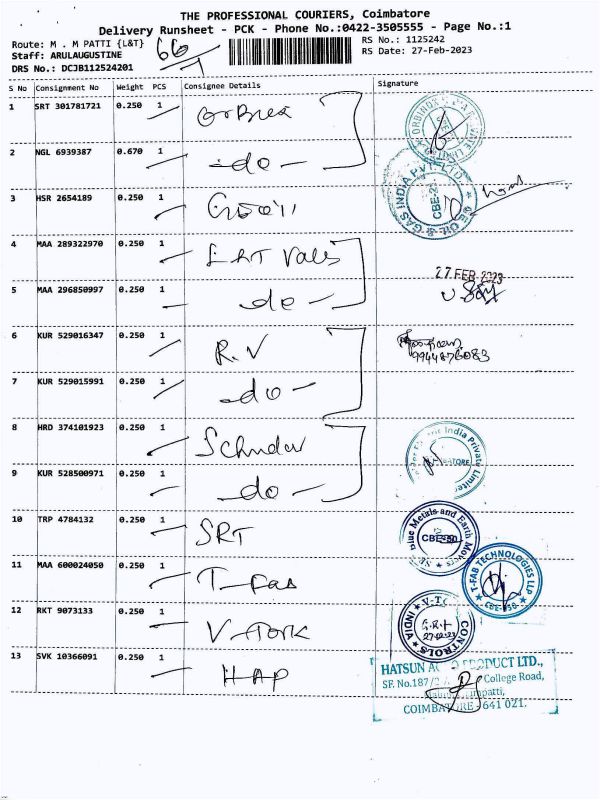 THE PROFESSIONAL COURIERS, Coimbatore
Delivery Runsheet - PCK - Phone No.:0422-3505555 - Page No.:1
Route: M . M PATTI {L&T}
RS No.: 1125242
Staff: ARULAUGUSTINE
RS Date: 27-Feb-2023
DRS No.: DCJB112524201
66/1
S No Consignment No Weight PCS Consignee Details Signature
1 SRT 301781721 0.250 1
2 NGL 6939387 0.670 1 -do-
3 HSR 2654189 0.250 1
4 MAA 289322970 0.250 1
5 MAA 296850997 0.250 1 -do-
27 FEB 2023
6 KUR 529016347 0.250 1 R.V
9944876083
7 KUR 529015991 0.250 1 -do-
8 HRD 374101923 0.250 1
9 KUR 528500971 0.250 1 -do-
10 TRP 4784132 0.250 1 SRT
Blue Metals and Earth
CBE-50
11 MAA 600024050 0.250 1 T-Fab
T-FAB TECHNOLOGIES LLP
CBE-50
12 RKT 9073133 0.250 1 V-Tork
CONTROLS
27-02-23
13 SVK 10366091 0.250 1 HAP
HATSUN PRODUCT LTD.,
SF. No.187/ College Road,
COIMBATORE - 641 021.